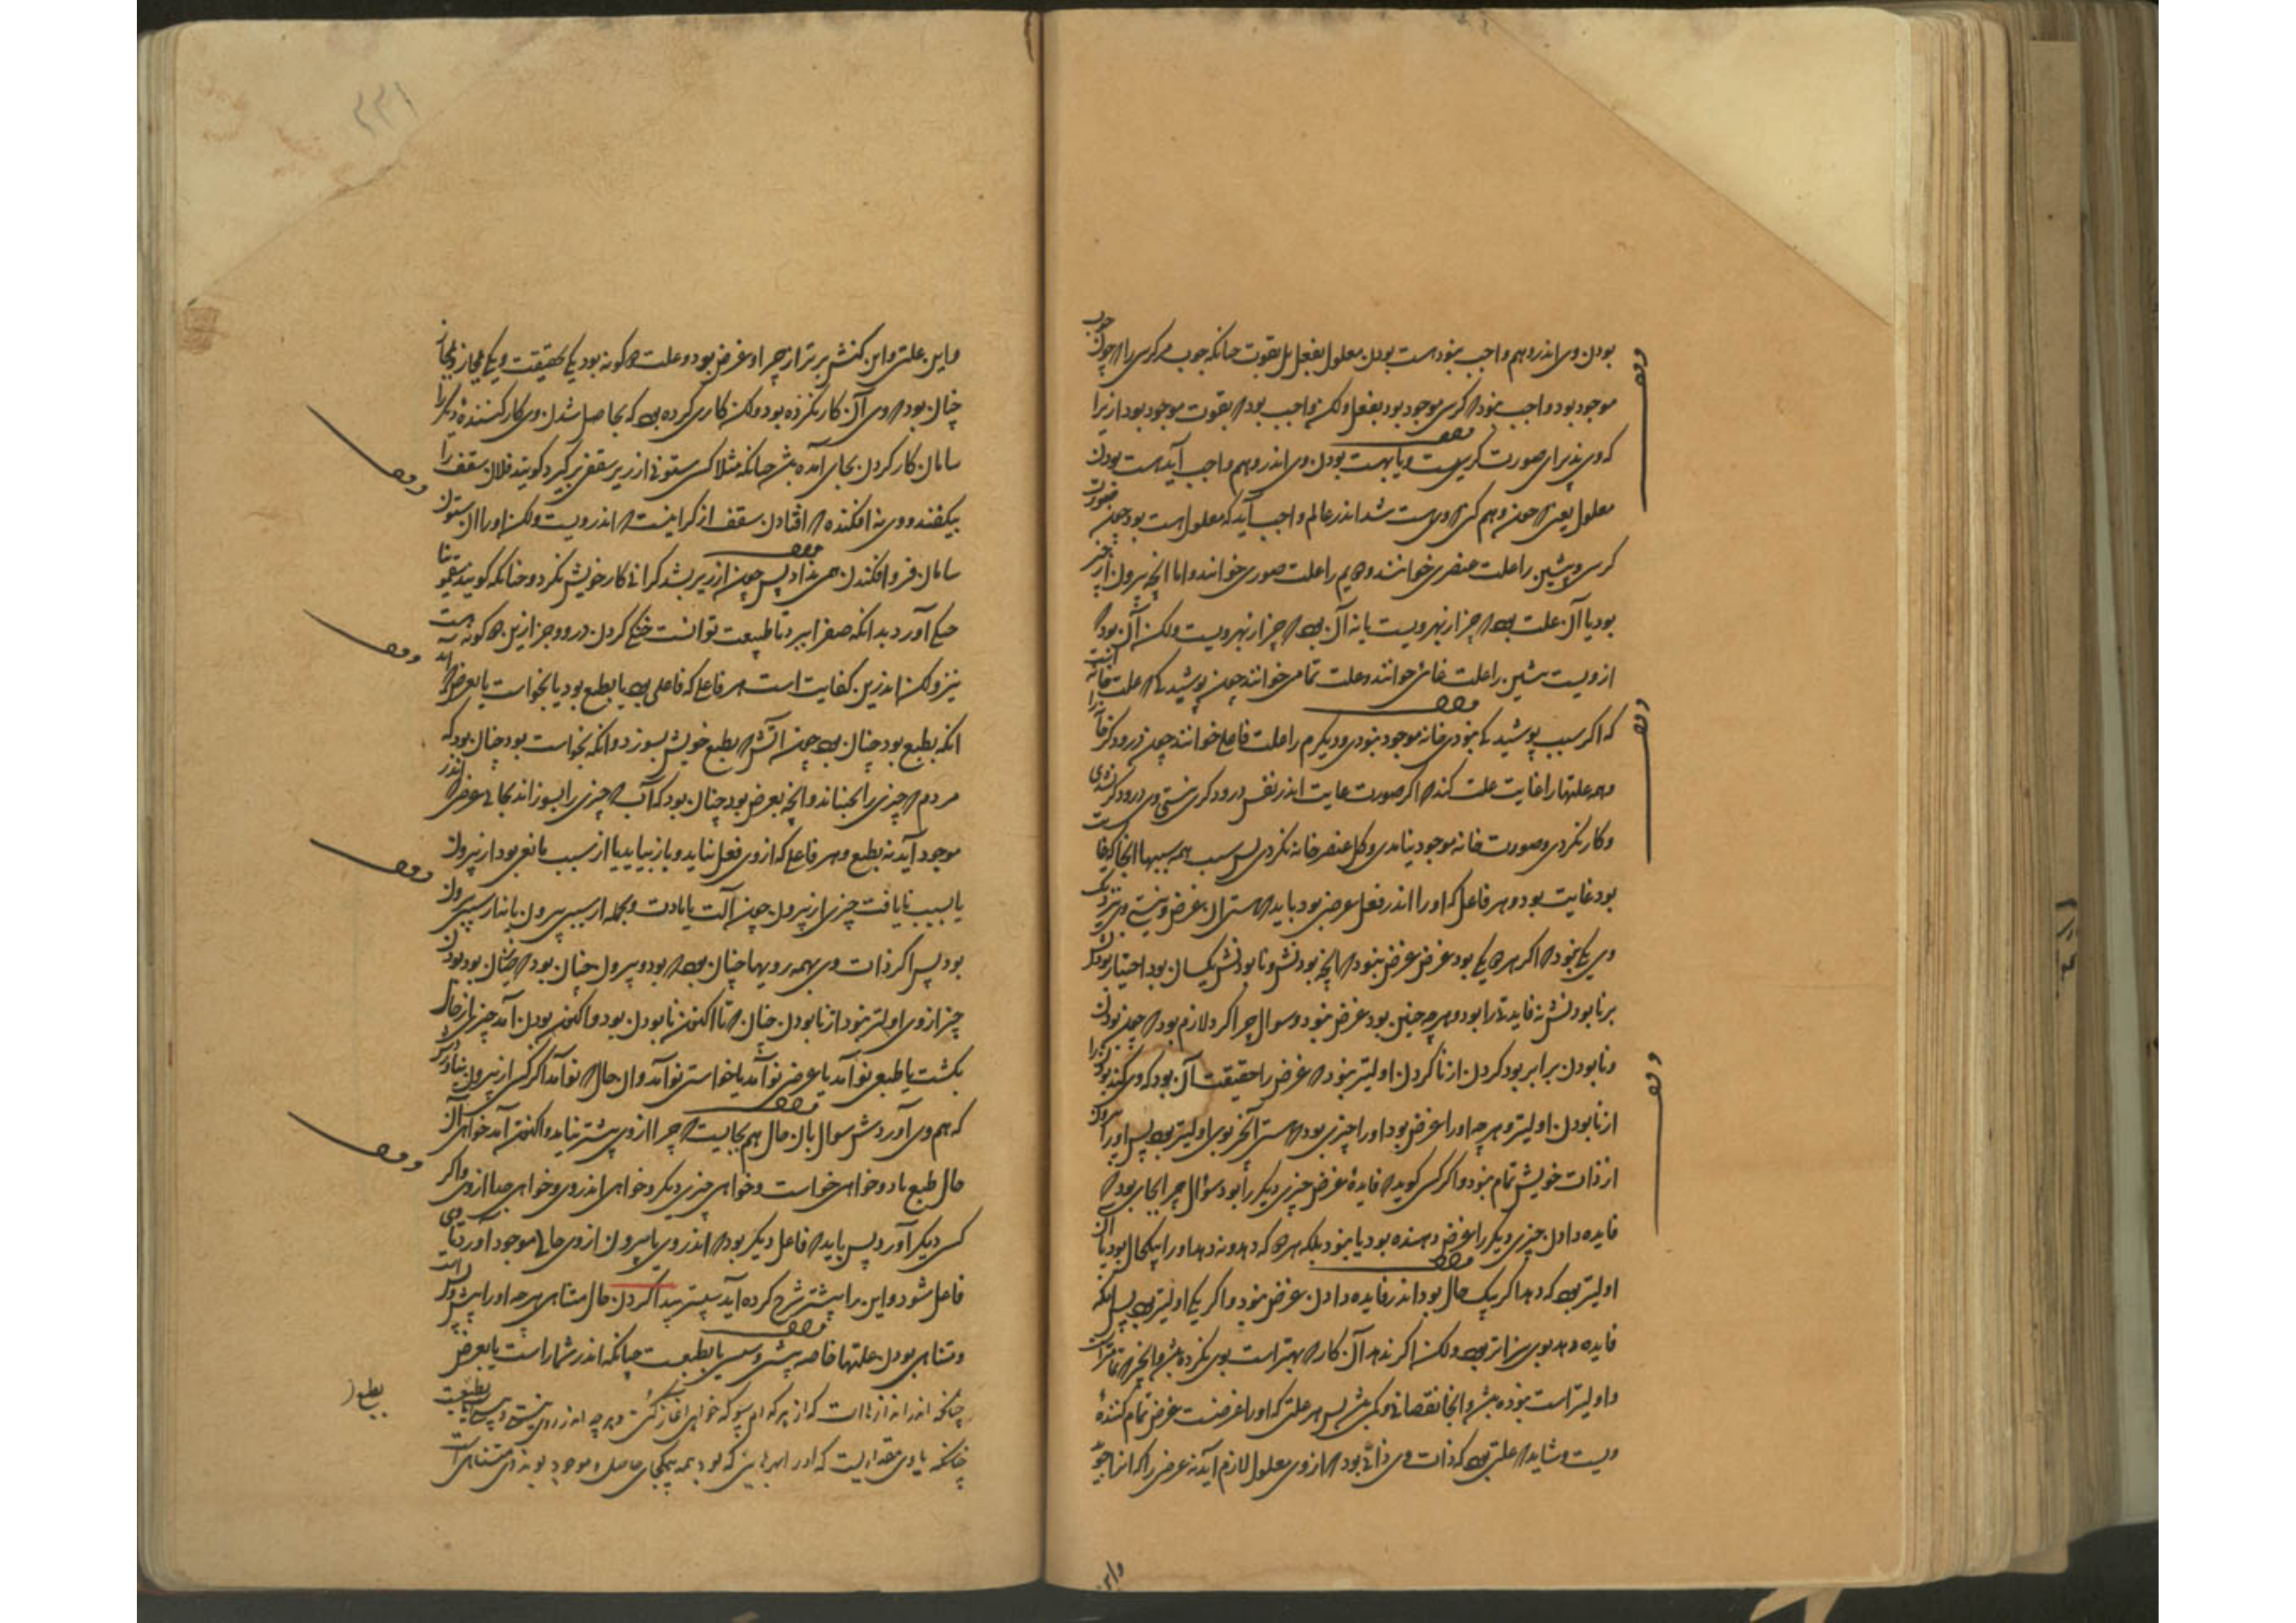 بودن وی اندر وهم واجب نبود هست بودن معلول بفعل بل بقوت چنانکه چوب مر کرسی را که چون چوب
موجود بود واجب نبود که کرسی موجود بود بفعل ولکن واجب بود که بقوت موجود بود ازیرا
که وی پذیرای صورت کرسیست و یا بهست بودن وی اندر وهم واجب آید هست بودن
معلول یعنی که چون وهم کنی که وی هست شد اندر عالم واجب آید که معلول هست بود چون صورت
کرسی و پیشین را علت عنصری خوانند و دویم را علت صوری خوانند و اما آنچه بیرون از چیز
بود یا آن علت بود که چیز از بهر ویست یا نه آن بود که چیز از بهر ویست ولکن آن بود که
از ویست پیشین را علت غائی خوانند و علت تمامی خوانند چون پوشیدگی که علت خانه است
که اگر سبب پوشیدگی نبودی خانه موجود نبودی و دیگرم را علت فاعلی خوانند چون درودگر خانه را
و همه علتها را غایت علت کند که اگر صورت غایت اندر نفس درودگر نیستی وی درودگر نشدی
و کار نکردی و صورت خانه موجود نیامدی و گل عنصر خانه نگردی پس سبب همه سببها آنجا که غایت
بود غایت بود و هر فاعل که او را اندر فعل غرضی بود باید که هستی آن غرض و نیستی وی نزدیک
وی یکی نبود که اگر هر دو یکی بود غرض غرض نبود که آنچه بودنش و نابودنش یکسان بود اختیار بودنش
بر نابودنش نه فایدتی را بود و هر چه چنین بود غرض نبود و سوال چرا کرد لازم بود که چون بودن
و نابودن برابر بود کردن از ناکردن اولیتر نبود که غرض را حقیقت آن بود که وی کند بودن را
از نابودن اولیتر و هر چه او را غرض بود او را چیزی بود که هستی آن چیز بوی اولیتر بود پس او را
از ذات خویش تمام نبود و اگر کسی گوید که فایدهٔ غرض چیزی دیگر را بود سؤال چرا بجای بود که
فایده دادن چیزی دیگر را غرض دهنده بود یا نبود بلکه هر دو که دهد و نه دهد او را یکحال بود یا آن
اولیتر بود که دهد اگر بیک حال بود اندر فایده دادن غرض نبود و اگر یکی اولیتر بود پس آنکه
فایده دهد بوی سزاتر بود ولکن اگر ندهد آن کار که بهتر است بوی نکرده باشد و آنچه تمامتر است
و اولیتر است نبوده باشد و آنجا نقصانی و کمی باشد پس هر علتی که او را غرضست غرض تمام کنندهٔ
ویست و شاید که علتی بود که ذات وی ذاتی بود که از وی معلول لازم آید نه غرضی را که آنرا جوید
واین
و این علتی و این کنش برتر از چرا و غرض بود و علت دو گونه بود یکی بحقیقت و یکی بمجاز و بمجاز
چنان بود که وی آن کار نکرده بود ولکن کاری کرده بود که بحاصل شدن وی کار کنندهٔ دیگر را
سامان کار کردن بجای آمده باشد چنانکه مثلا کسی ستونی از زیر سقف برگیرد گویند فلان سقف را
بیفکند و وی نه افکنده که افتادن سقف از گرانیست که اندر ویست ولکن او را آن ستون
سامان فرو افکندن همی نداد پس چون از زیر بشد گرانی کار خویش بکرد و چنانکه گویند سقمونیا
خنکی آورد بدانکه صفرا ببرد تا طبیعت توانست خنکی کردن در او جز ازین دو گونه هست
نیز ولکن اندرین کفایت است هر فاعلی که فاعلی بود یا بطبع بود یا بخواست یا بعرض اما
آنکه بطبع بود چنان بود چون آتش که بطبع خویش بسوزد و آنکه بخواست بود چنان بود که
مردم که چیزی را بجنباند و آنچه بعرض بود چنان بود که آب که چیزی را بسوزاند بحالی عرضی که اندر وی
موجود آید نه بطبع و هر فاعلی که از وی فعل نیاید و باز بیاید یا از سبب مانعی بود از بیرون
یا بسبب نایافت چیزی از بیرون چون آلت یا مادت و بجمله از سببی بیرون یا نه از سببی بیرون
بود پس اگر ذات وی بهمه رویها چنان بود که بود و بیرون چنان بود که چنان بود بودن
چیز از وی اولیتر نبود از نابودن چنان که تا اکنون نابودن بود و اکنون بودن آمد چیزی از حال
بگشت یا طبعی نو آمد یا عرضی نو آمد یا خواستی نو آمد و آن حال که نو آمد اگر کسی از بیرون نیاورد
که هم وی آوردش سوال بآن حال هم بجایست که چرا از وی پیشتر نیامد و اکنون آمد خواهی آن
حال طبع باد و خواهی خواست و خواهی چیزی دیگر و خواهی اندر وی و خواهی جدا از وی و اگر
کسی دیگر آورد پس باید که فاعل دیگر بود که اندر وی یا بیرون از وی حالی موجود آورد تا وی
فاعل شود و این را پیشتر شرح کرده آید سپستر پیدا کردن حال متناهی هر چه او را پیش و پس است
و متناهی بودن علتها خاصه پیشی و سپسی یا بطبعست چنانکه اندر شمار است یا بعرض
چنانکه اندر اندازهاست که از هر کدام سو که خواهی آغاز کنی و هر چه اندر وی پیشی و سپسی است بطبیعت
چنانکه یا وی مقداریست که او را بهرهایی که بود بهمه یکجای حاصل و موجود بوند وی متناهی است
بطبع